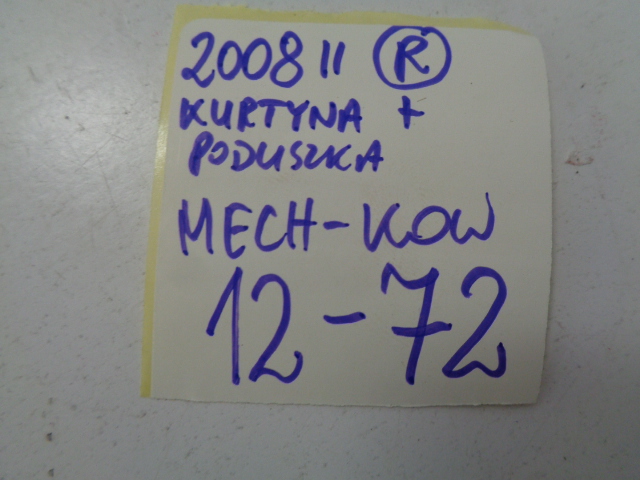 2008 11 R
KURTYNA +
PODUSZKA
MECH-KOW
12-72